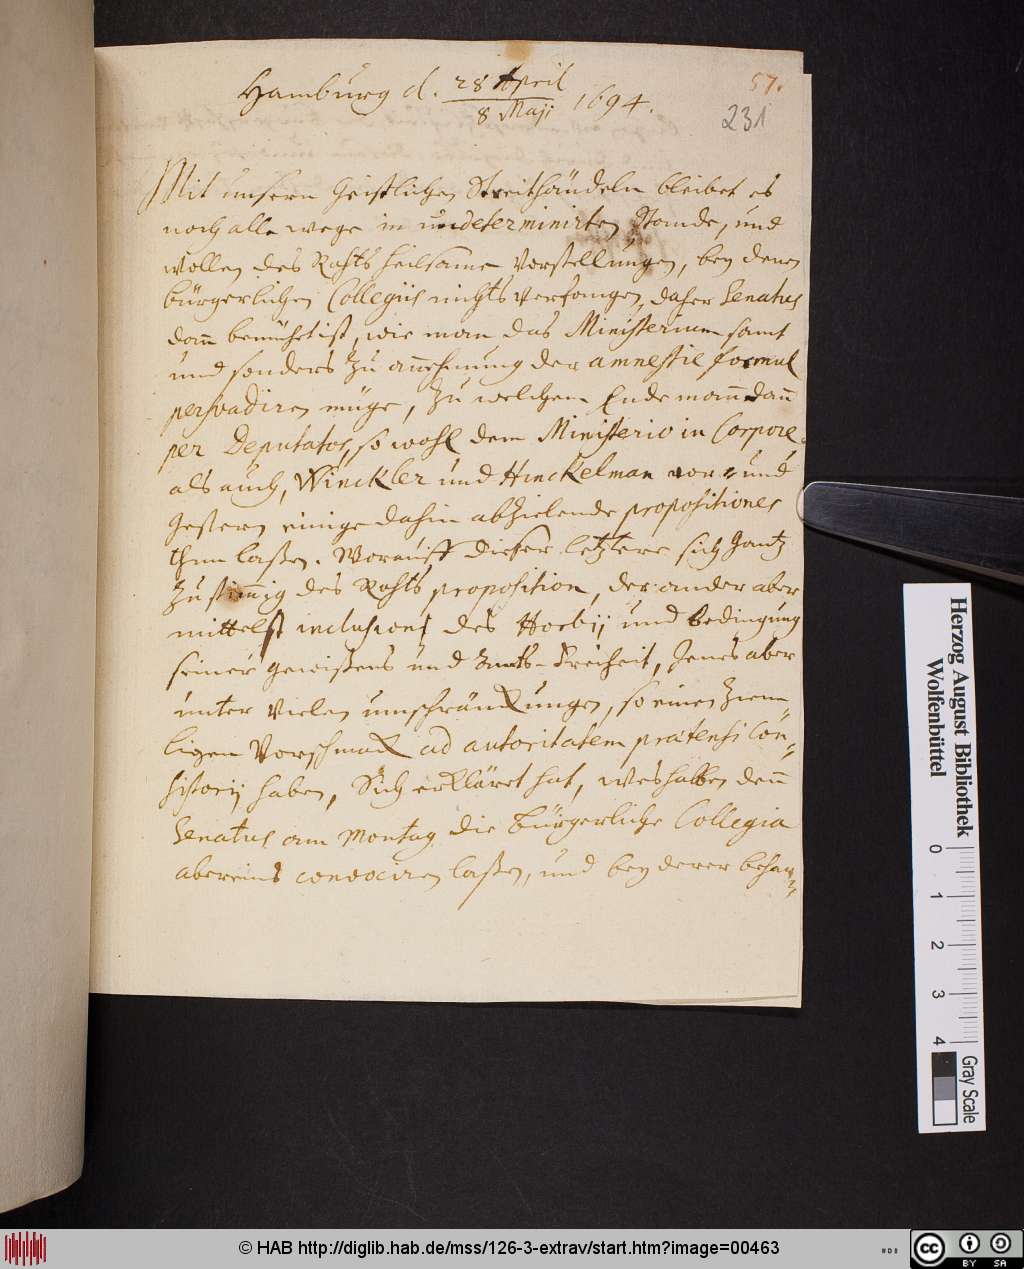 Hamburg d. 28 April
8 Maji 1694.
57.
231
Mit unsern Geistlichen Streithändeln bleibet es
noch alle wege in undeterminirten Stande, und
wollen des Rahts heilsame Vorstellungen, bey denen
bürgerlichen Collegiis nichts verfangen, daher Senatus
dann bemühet ist, wie man das Ministerium samt
und sonders zu annehmung der amnestie formul
persvadiren müge, zu welchem Ende man dann
per Deputatos, so wohl dem Ministerio in Corpore
als auch, Winckler und Hinckelman vor und
gestern einige dahin abzielende propositiones
thun laßen. Worauff dieser letztere sich gantz
zustimig des Rahts proposition, der ander aber
mittelst inclusions des Horbij und bedingung
seiner gewißens und Ambts-Freiheit, Jenes aber
unter vielen umschränckungen, so einen ziem
ligen Vorschmack ad autoritatem prætensi Con-
sistorij haben, Sich erkläret hat, weshalben denn
Senatus am Montag die bürgerliche Collegia
abereins convociren laßen, und bey derer behar-
Herzog August Bibliothek
Wolfenbüttel
0 1 2 3 4
Gray Scale
© HAB http://diglib.hab.de/mss/126-3-extrav/start.htm?image=00463
cc BY SA